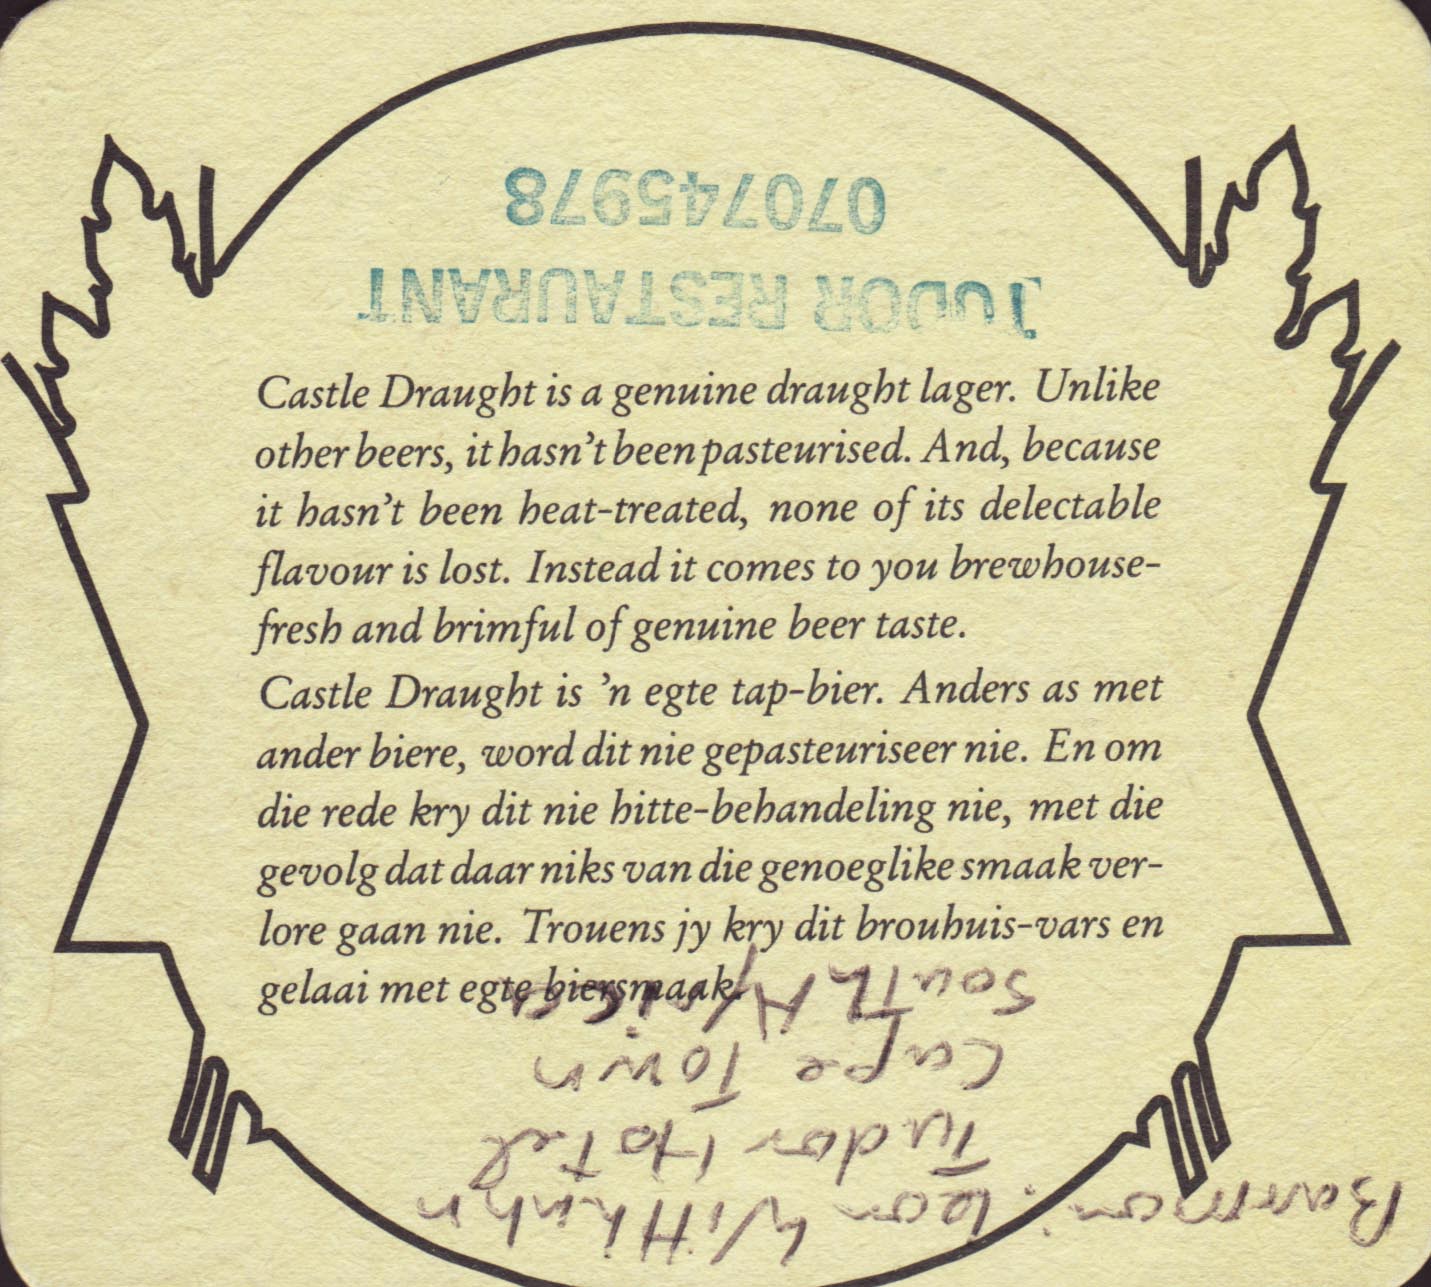 070745978
TUDOR RESTAURANT
Castle Draught is a genuine draught lager. Unlike
other beers, it hasn't been pasteurised. And, because
it hasn't been heat-treated, none of its delectable
flavour is lost. Instead it comes to you brewhouse-
fresh and brimful of genuine beer taste.
Castle Draught is 'n egte tap-bier. Anders as met
ander biere, word dit nie gepasteuriseer nie. En om
die rede kry dit nie hitte-behandeling nie, met die
gevolg dat daar niks van die genoeglike smaak ver-
lore gaan nie. Trouens jy kry dit brouhuis-vars en
gelaai met egte biersmaak.
Barman: Leon
Tudor Hotel
Cape Town
South Africa